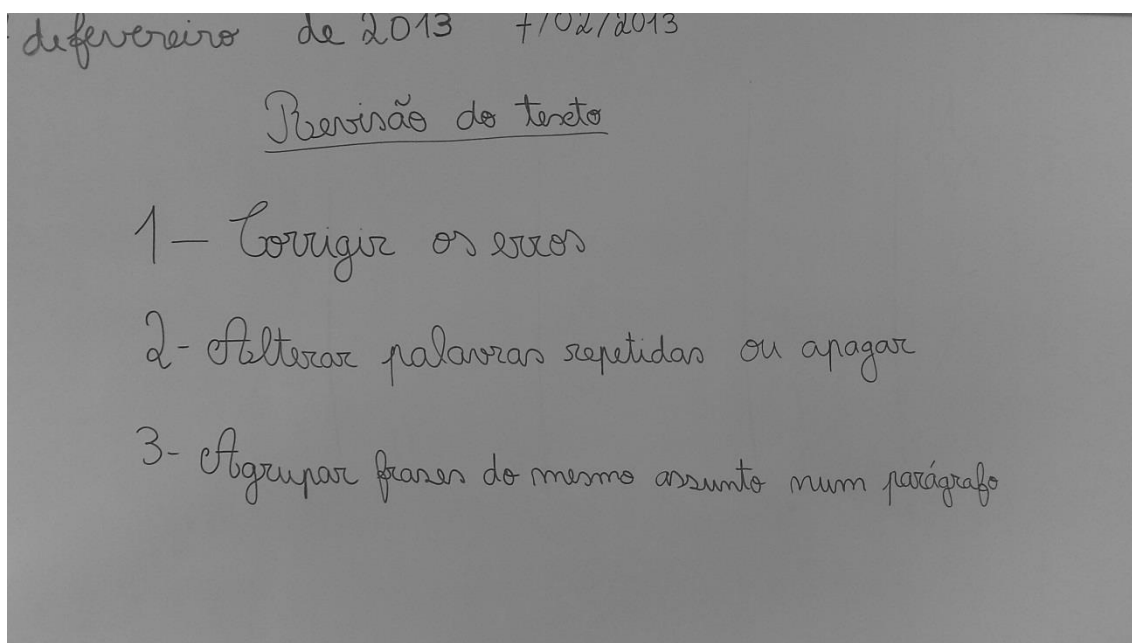 de fevereiro de 2013 7/02/2013
Revisão do texto
1- Corrigir os erros
2- Alterar palavras repetidas ou apagar
3- Agrupar frases do mesmo assunto num parágrafo